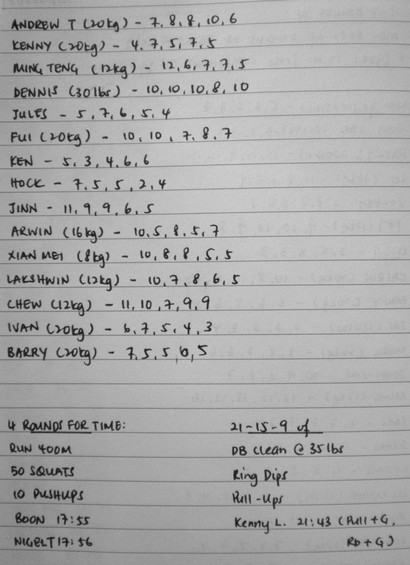 ANDREW T (20kg) - 7, 8, 8, 10, 6
KENNY (20kg) - 4, 7, 5, 7, 5
MING TENG (12kg) - 12, 6, 7, 7, 5
DENNIS (30lbs) - 10, 10, 10, 8, 10
JULES - 5, 7, 6, 5, 4
FUI (20kg) - 10, 10, 7, 8, 7
KEN - 5, 3, 4, 6, 6
HOCK - 7, 5, 5, 2, 4
JINN - 11, 9, 9, 6, 5
ARWIN (16kg) - 10, 5, 8, 5, 7
XIAN MEI (8kg) - 10, 8, 8, 5, 5
LAKSHWIN (12kg) - 10, 7, 8, 6, 5
CHEW (12kg) - 11, 10, 7, 9, 9
IVAN (20kg) - 6, 7, 5, 4, 3
BARRY (20kg) - 7, 5, 5, 6, 5
4 ROUNDS FOR TIME:
RUN 400M
50 SQUATS
10 PUSHUPS
BOON 17:55
NIGEL T 17:56
21-15-9 of
DB Clean @ 35lbs
Ring Dips
Pull-Ups
Kenny L. 21:43 (Pull+G,
RD+G)